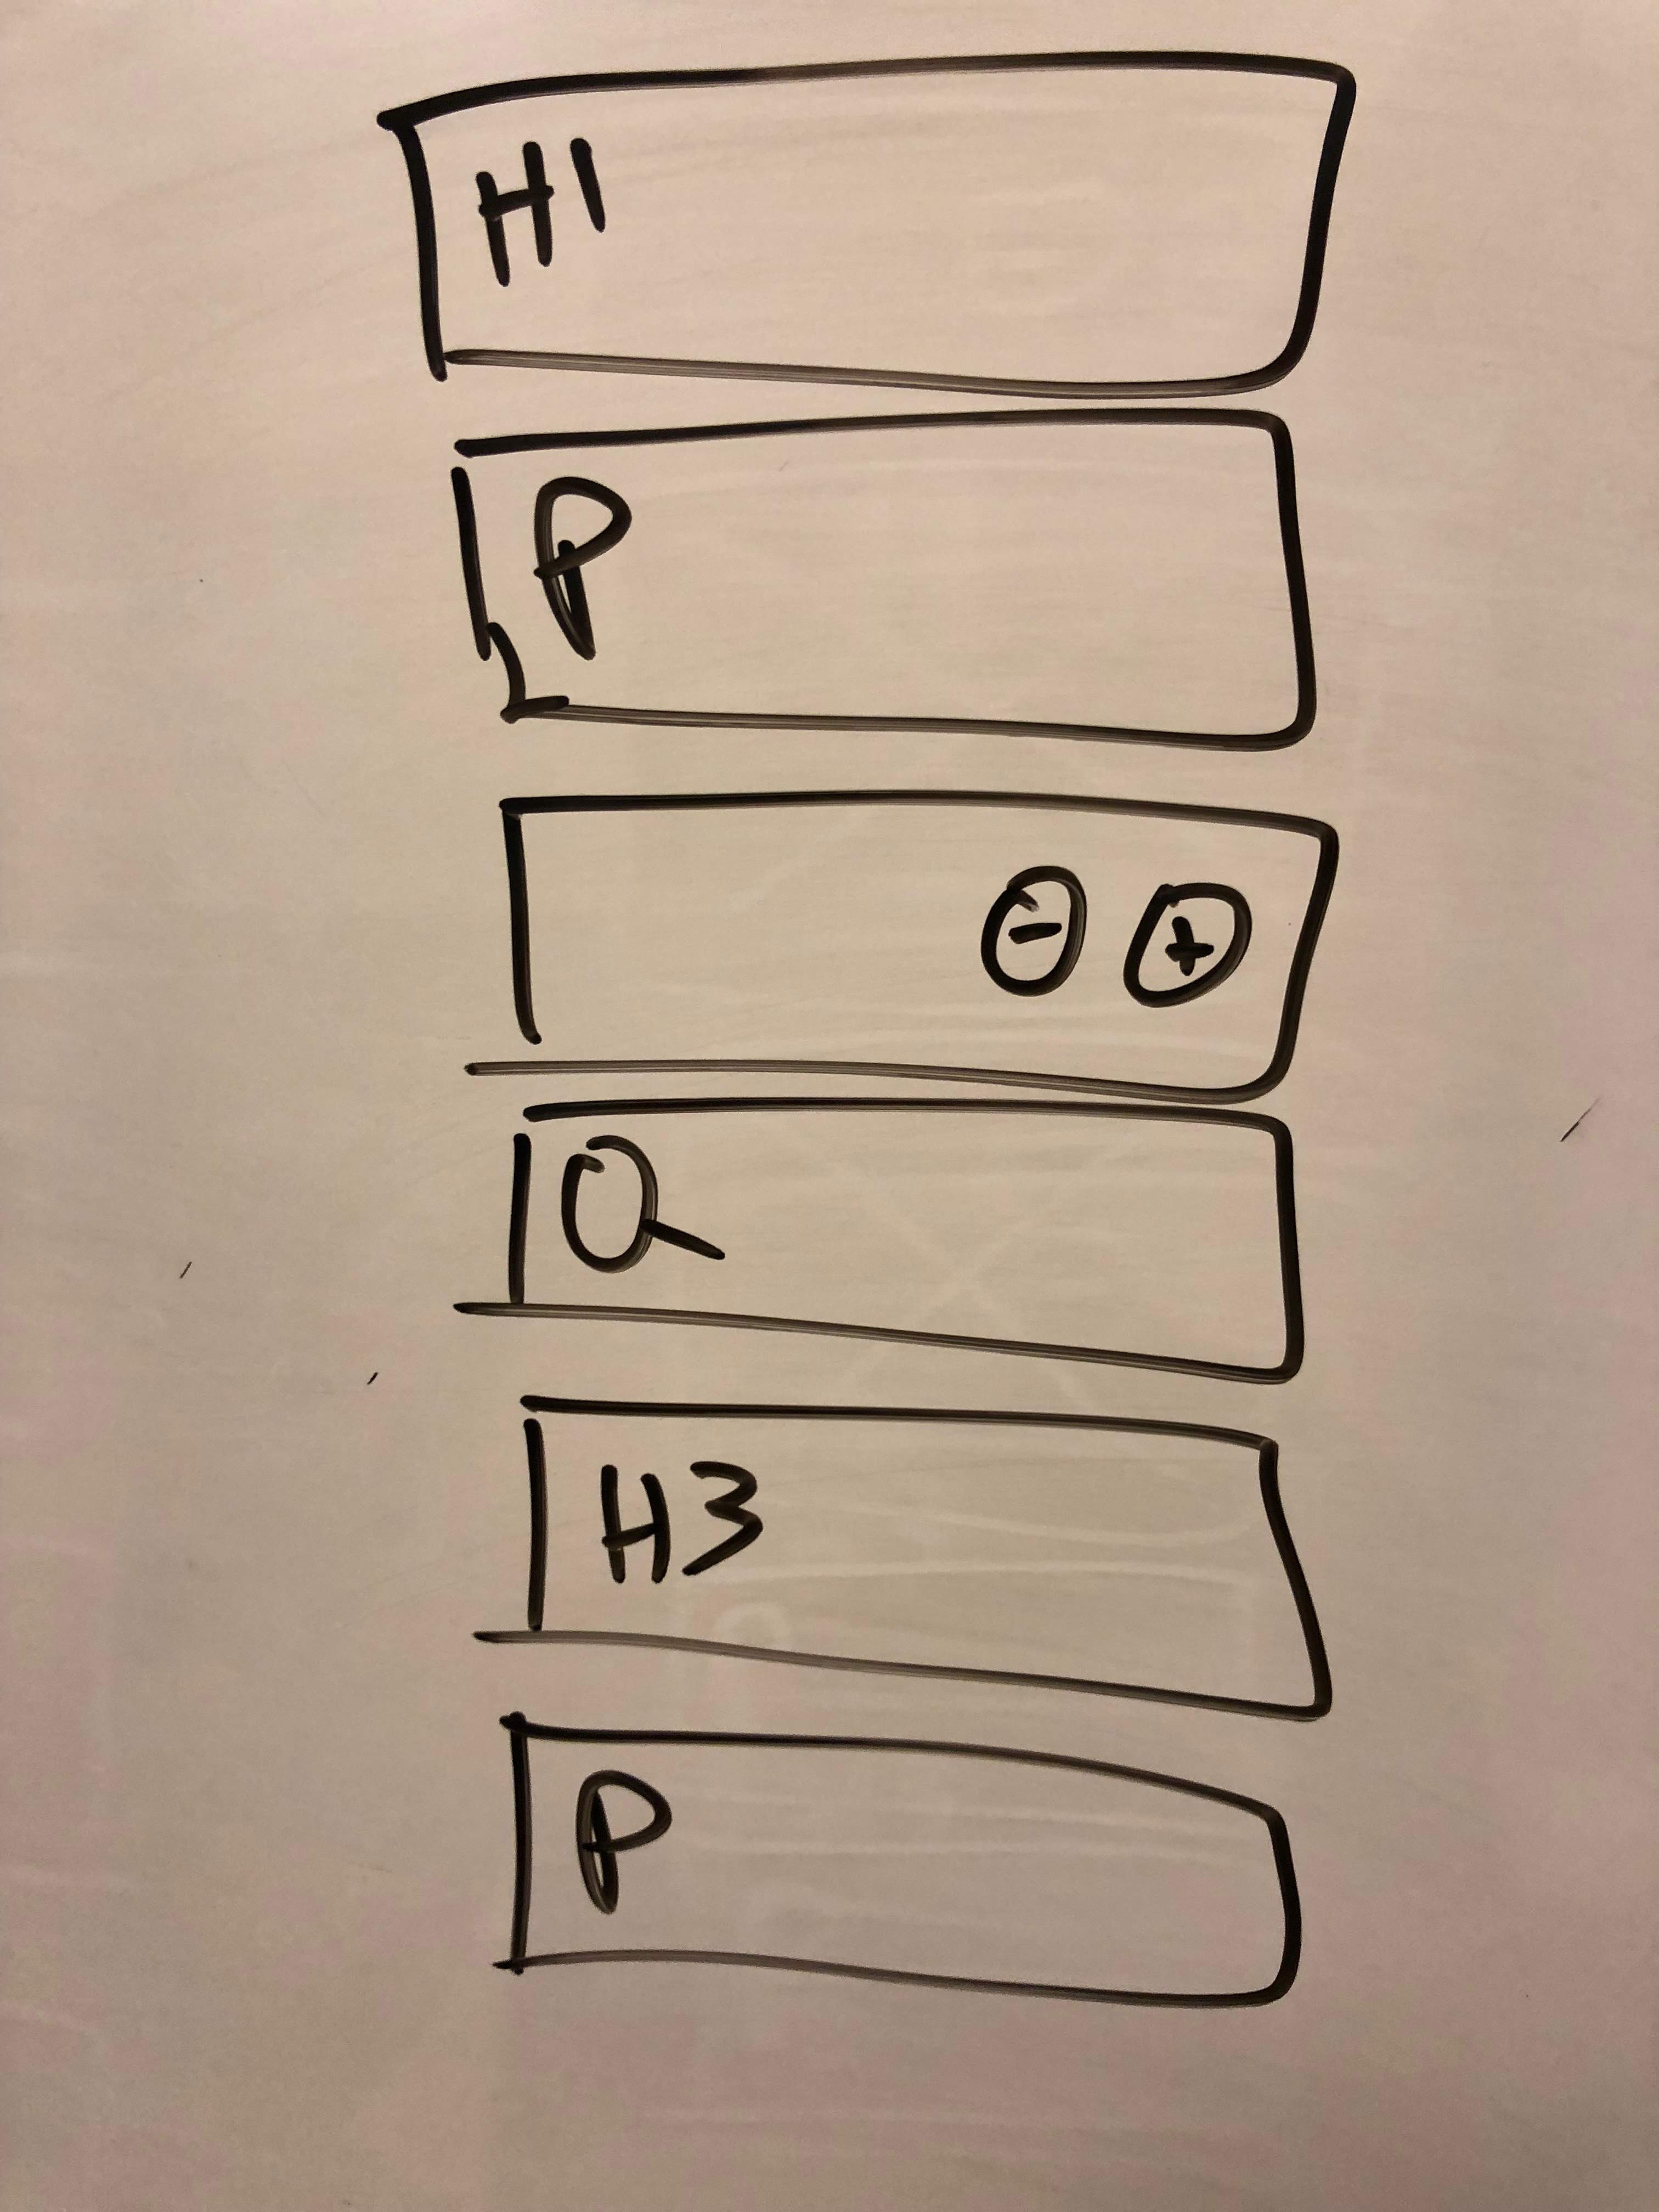 H1
P
- +
Q
H3
P